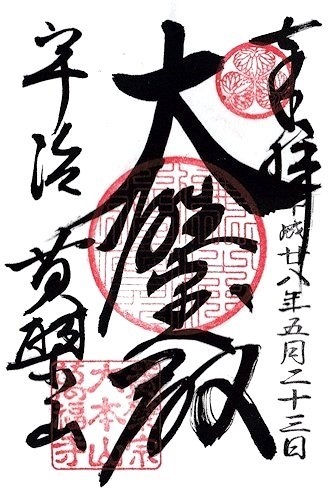 奉拝
平成廿八年五月二十三日
大雄宝殿
宇治 黄檗山
黄檗宗
大本山
萬福寺